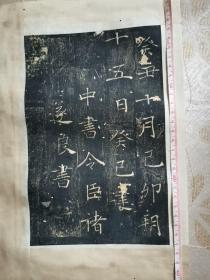 癸丑十月己卯朔
十五日癸巳建
中書令臣褚
遂良書